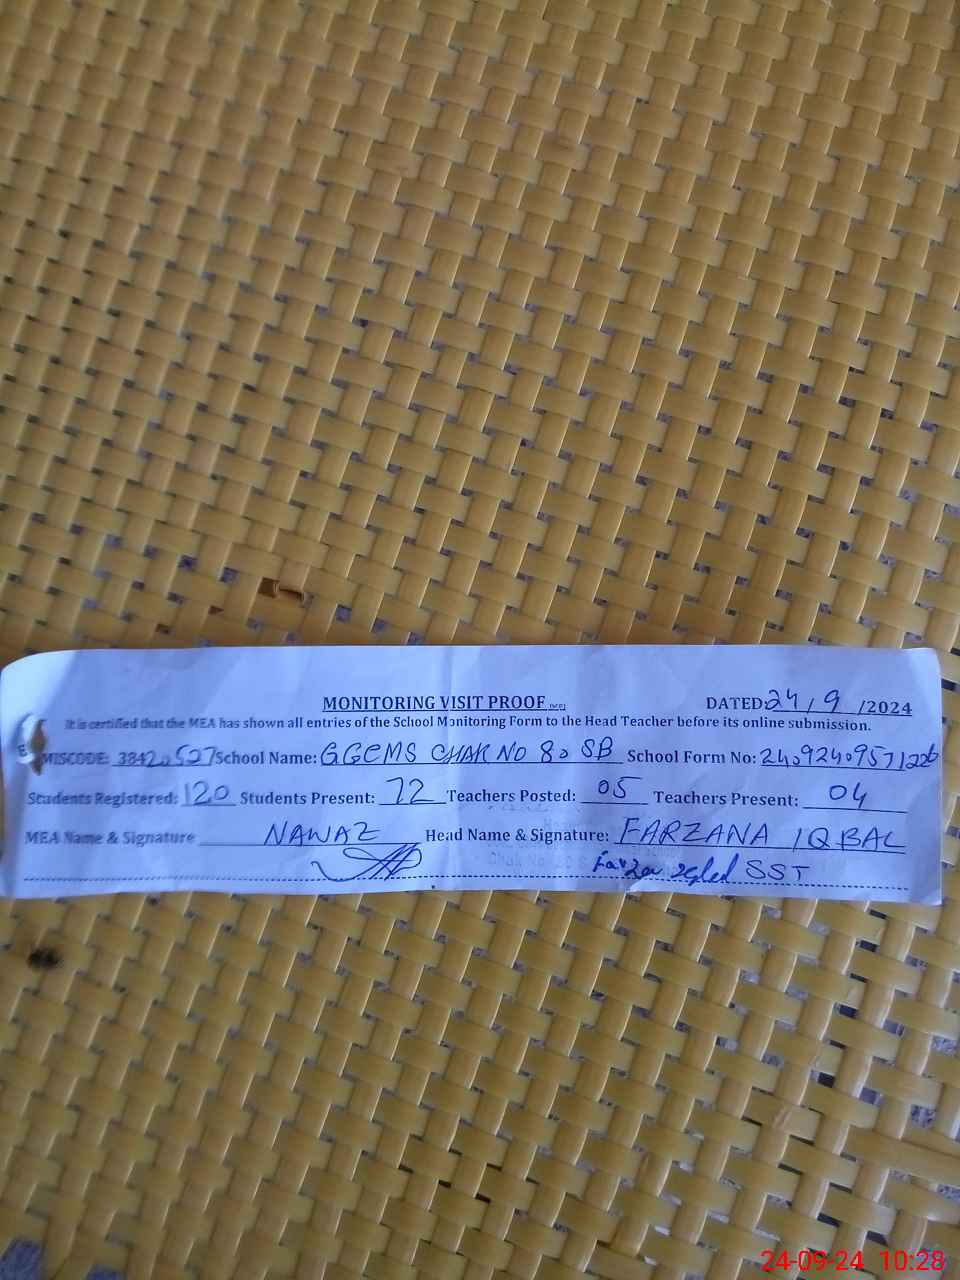 MONITORING VISIT PROOF DATED 24/9/2024
It is certified that the MEA has shown all entries of the School Monitoring Form to the Head Teacher before its online submission.
EMISCODE: 38420527 School Name: GGCMS CHAK NO 80 SB School Form No:
Students Registered: 120 Students Present: 72 Teachers Posted: 05 Teachers Present: 04
MEA Name & Signature NAWAZ Head Name & Signature: FARZANA IQBAL
SST
24-09-24 10:28